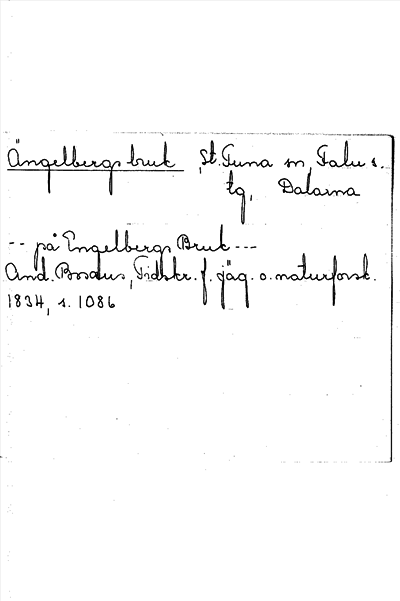 Ängelbergs bruk St. Tuna sn, Falu s.
tg, Dalarna
-- på Engelbergs Bruk ---
And. Bosdus, Tidskr. f. jäg. o. naturforsk.
1834, s. 1086